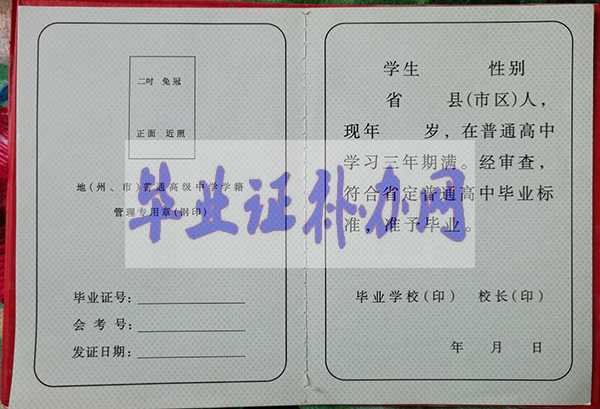 二吋 免冠
正面 近照
地(州、市)普通高级中学学籍
管理专用章(钢印)
毕业证号:
会考号:
发证日期:
学生 性别
省 县(市区)人,
现年 岁,在普通高中
学习三年期满。经审查,
符合省定普通高中毕业标
准,准予毕业。
毕业学校(印) 校长(印)
年 月 日
毕业证补办网